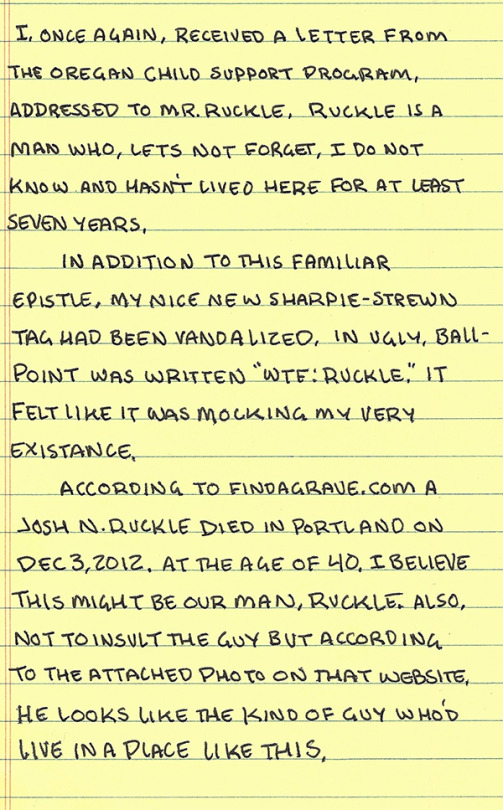 I, ONCE AGAIN, RECEIVED A LETTER FROM
THE OREGAN CHILD SUPPORT PROGRAM,
ADDRESSED TO MR. RUCKLE. RUCKLE IS A
MAN WHO, LETS NOT FORGET, I DO NOT
KNOW AND HASN'T LIVED HERE FOR AT LEAST
SEVEN YEARS.
IN ADDITION TO THIS FAMILIAR
EPISTLE, MY NICE NEW SHARPIE-STREWN
TAG HAD BEEN VANDALIZED. IN UGLY, BALL-
POINT WAS WRITTEN "WTF: RUCKLE." IT
FELT LIKE IT WAS MOCKING MY VERY
EXISTANCE.
ACCORDING TO FINDAGRAVE.COM A
JOSH N. RUCKLE DIED IN PORTLAND ON
DEC 3, 2012. AT THE AGE OF 40. I BELIEVE
THIS MIGHT BE OUR MAN, RUCKLE. ALSO,
NOT TO INSULT THE GUY BUT ACCORDING
TO THE ATTACHED PHOTO ON THAT WEBSITE,
HE LOOKS LIKE THE KIND OF GUY WHO'D
LIVE IN A PLACE LIKE THIS.